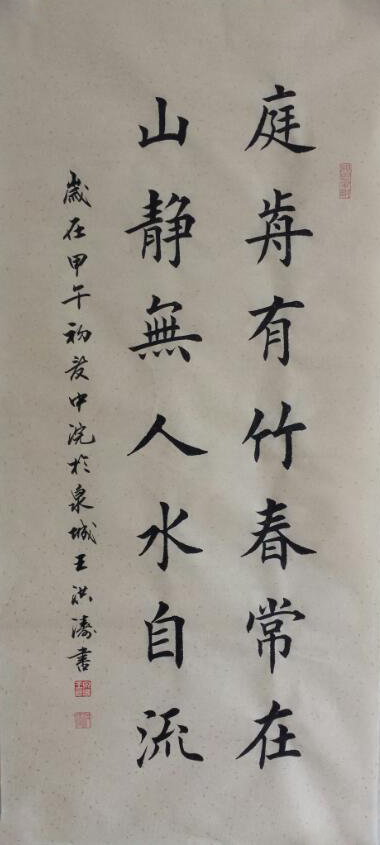 庭歬有竹春常在
山静無人水自流
歲在甲午初夏中浣於泉城王洪濤書